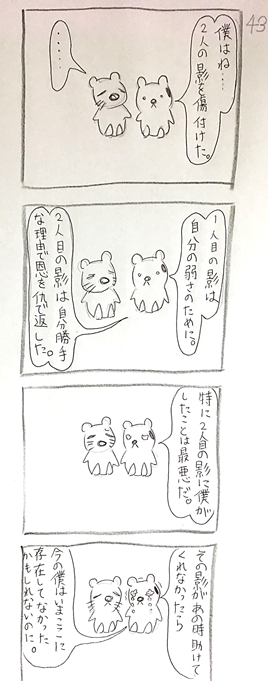 43
僕はね…
2人の影を傷付けた。
・・・・・・
1人目の影は
自分の弱さのために。
2人目の影は自分勝手
な理由で恩を仇で返した。
特に2人目の影に僕が
したことは最悪だ。
その影があの時助けて
くれなかったら
今の僕はいまここに
存在してなかった
かもしれないのに。